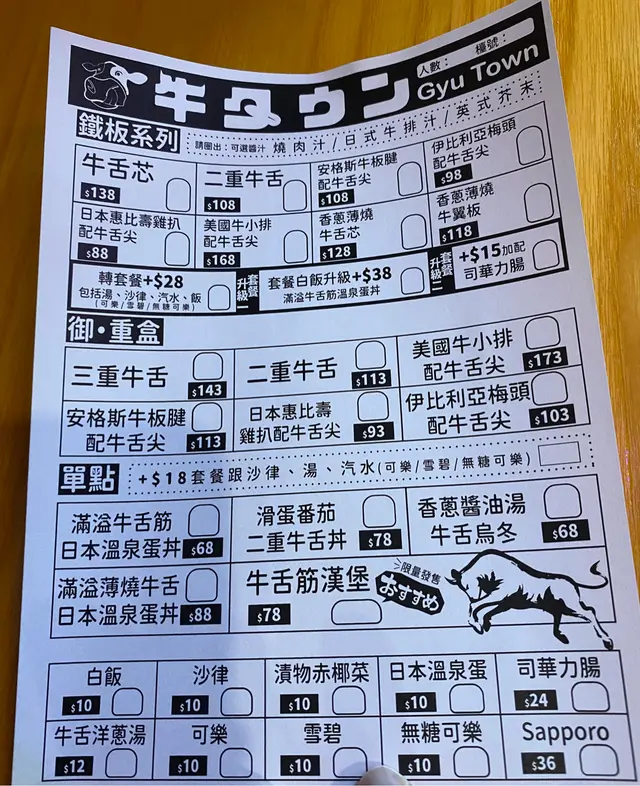 人數： 檯號：
牛タウン Gyu Town
鐵板系列 請圈出：可選醬汁 燒肉汁/日式牛排汁/英式芥末
牛舌芯
$138
二重牛舌
$108
安格斯牛板腱
配牛舌尖
$108
伊比利亞梅頭
配牛舌尖
$98
日本惠比壽雞扒
配牛舌尖
$88
美國牛小排
配牛舌尖
$168
香蔥薄燒
牛舌芯
$128
香蔥薄燒
牛翼板
$118
轉套餐+$28
包括湯、沙律、汽水、飯
(可樂/雪碧/無糖可樂)
套餐升級一
套餐白飯升級+$38
滿溢牛舌筋溫泉蛋丼
套餐升級二
+$15加配
司華力腸
御・重盒
三重牛舌
$143
二重牛舌
$113
美國牛小排
配牛舌尖
$173
安格斯牛板腱
配牛舌尖
$113
日本惠比壽
雞扒配牛舌尖
$93
伊比利亞梅頭
配牛舌尖
$103
單點 +$18套餐跟沙律、湯、汽水(可樂/雪碧/無糖可樂)
滿溢牛舌筋
日本溫泉蛋丼
$68
滑蛋番茄
二重牛舌丼
$78
香蔥醬油湯
牛舌烏冬
$68
滿溢薄燒牛舌
日本溫泉蛋丼
$88
牛舌筋漢堡
$78
限量發售
おすすめ
白飯
$10
沙律
$10
漬物赤椰菜
$10
日本溫泉蛋
$10
司華力腸
$24
牛舌洋蔥湯
$12
可樂
$10
雪碧
$10
無糖可樂
$10
Sapporo
$36